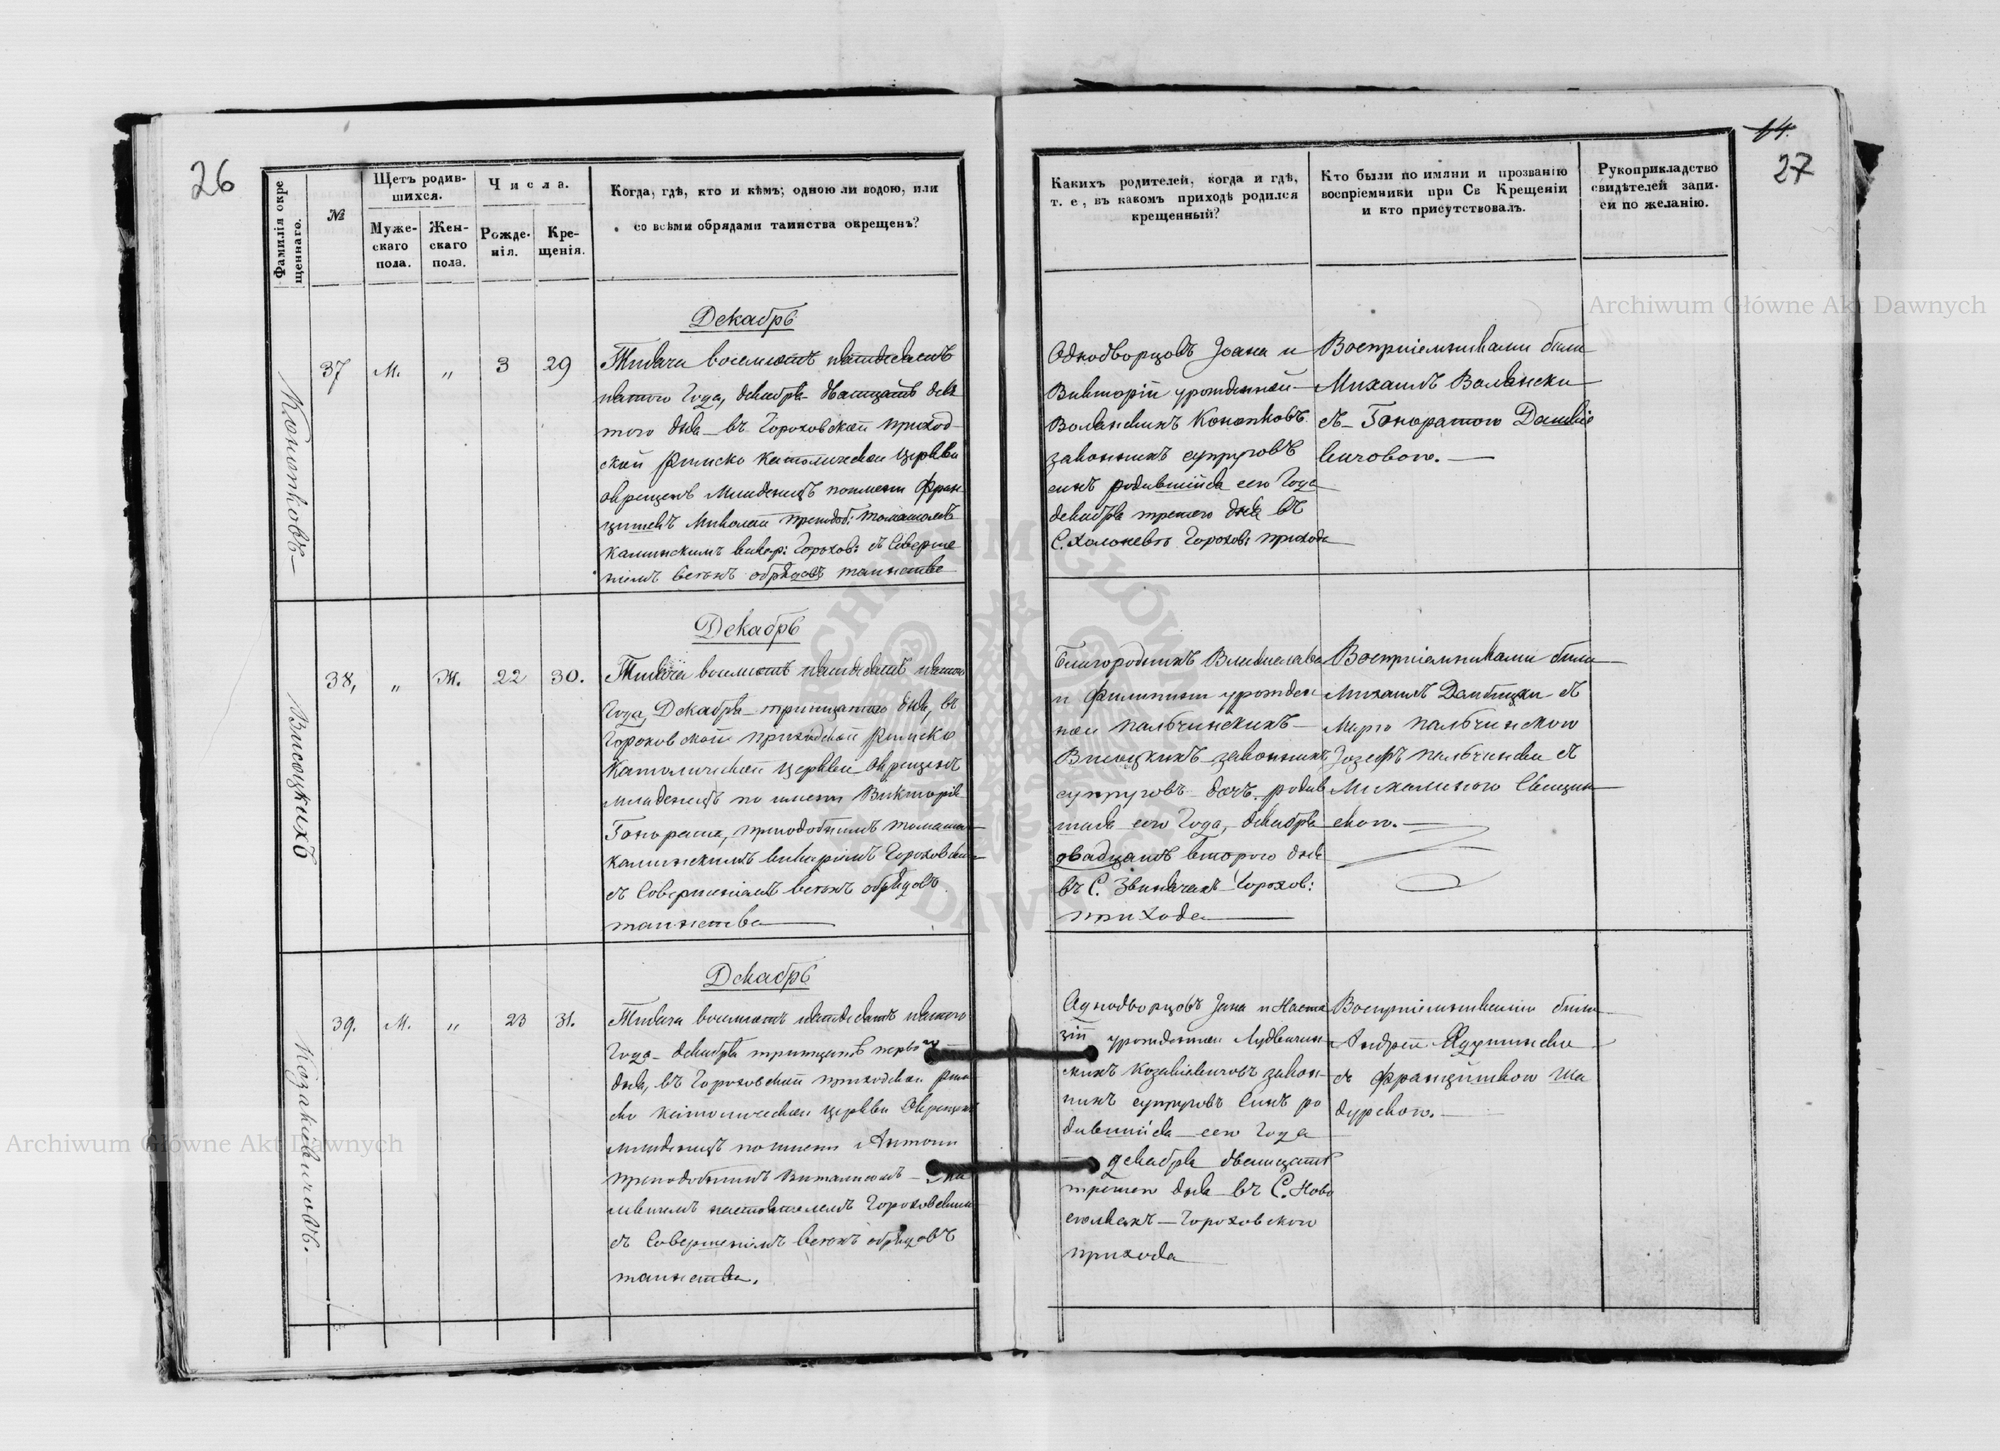 26
Фамилія окре
щеннаго.
№
Щетъ родив-
шихся.
Муже-
скаго
пола.
Жен-
скаго
пола.
Числа.
Рожде-
нія.
Кре-
щенія.
Когда, гдѣ, кто и кѣмъ, одною ли водою, или
со всѣми обрядами таинства окрещенъ?
Кононковъ
37
М.
"
3
29
Декабрь
Тысяча восемьсотъ пятьдесятъ
пятого Года, декабря двадцать девя
того дня въ Гороховской приход-
ской Римско Католической Церкви
окрещенъ Младенецъ по имени Фран
цишекъ Миколай преподоб: Томашомъ
Калинскимъ викар: Горохов: съ Соверше
ніемъ всѣхъ обрядовъ таинства
Висоцкихъ
38,
"
Ж.
22
30.
Декабрь
Тысяча восемьсотъ пятьдесятъ пятого
Года, Декабря тритцатого дня, въ
Гороховской приходской Римско
Католической Церкви Окрещенъ
младенецъ по имени Викторія
Гонората, преподобнымъ Томашом
Калинскимъ викаріемъ Гороховским
съ Совершеніемъ всѣхъ обрядовъ
таинства
Козакевичовъ.
39.
М.
"
23
31.
Декабрь
Тысяча восемьсотъ пятьдесятъ пятого
Года декабря тритцать перво
дня, въ Гороховской приходской Рим
ско католической церкви Окрещенъ
младенецъ по имени Антони
преподобнымъ Виталисомъ
настоятелемъ Гороховским
съ Совершеніемъ всѣхъ обрядовъ
таинства.
14.
27
Какихъ родителей, когда и гдѣ,
т. е, въ какомъ приходѣ родился
крещенный?
Кто были по имяни и прозванію
воспріемники при Св Крещеніи
и кто присутствовалъ.
Рукоприкладство
свидѣтелей запи-
си по желанію.
Однодворцовъ Іоана и
Викторіи урожденной
Волянскихъ Кононковъ
законныхъ супруговъ
сынъ родившійся сего Года
декабря третого дня въ
С. Холоневѣ Горохов: прихода
Воспріемниками были
Михаилъ Волянски
съ Гоноратою Данкѣ
вичовою.
Благородныхъ Владислава
и Филипины урожден
ной Пальчинскихъ
Висоцкихъ законныхъ
супруговъ дочь родив
шаяся сего Года, декабря
двадцать второго дня
въ С. Звинячахъ Горохов:
прихода
Воспріемниками были
Михаилъ Домбицки съ
Маріо Пальчинскою
Іозефъ Пальчински съ
Михалиною Свецин
скою.
Однодворцовъ Яна и Наста
зіи урожденной
Козакевичовъ закон-
ныхъ супруговъ Сынъ ро
дившійся сего Года
декабря двадцать
третего дня въ С. Ново
сюлкахъ Гороховского
прихода
Воспріемниками были
Андрей Ядушински
съ Францишкою Ша
дурскою.
Archiwum Główne Akt Dawnych
Archiwum Główne Akt Dawnych
ARCHIWUM GŁÓWNE AKT DAWNYCH